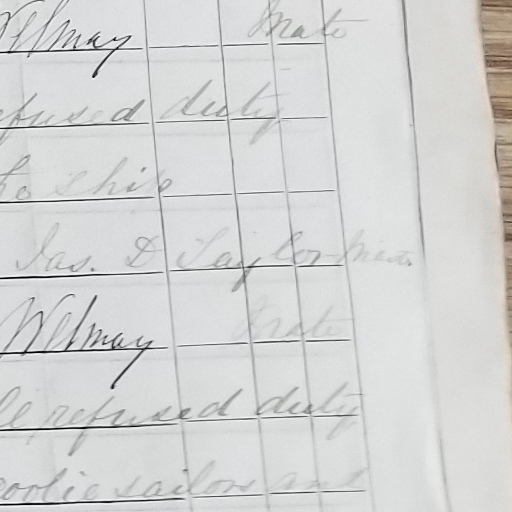 Welmay Mate
efused duty
he ship
Jas. D Taylor Mast.
Welmay Mate
le, refused duty
coolie sailors and